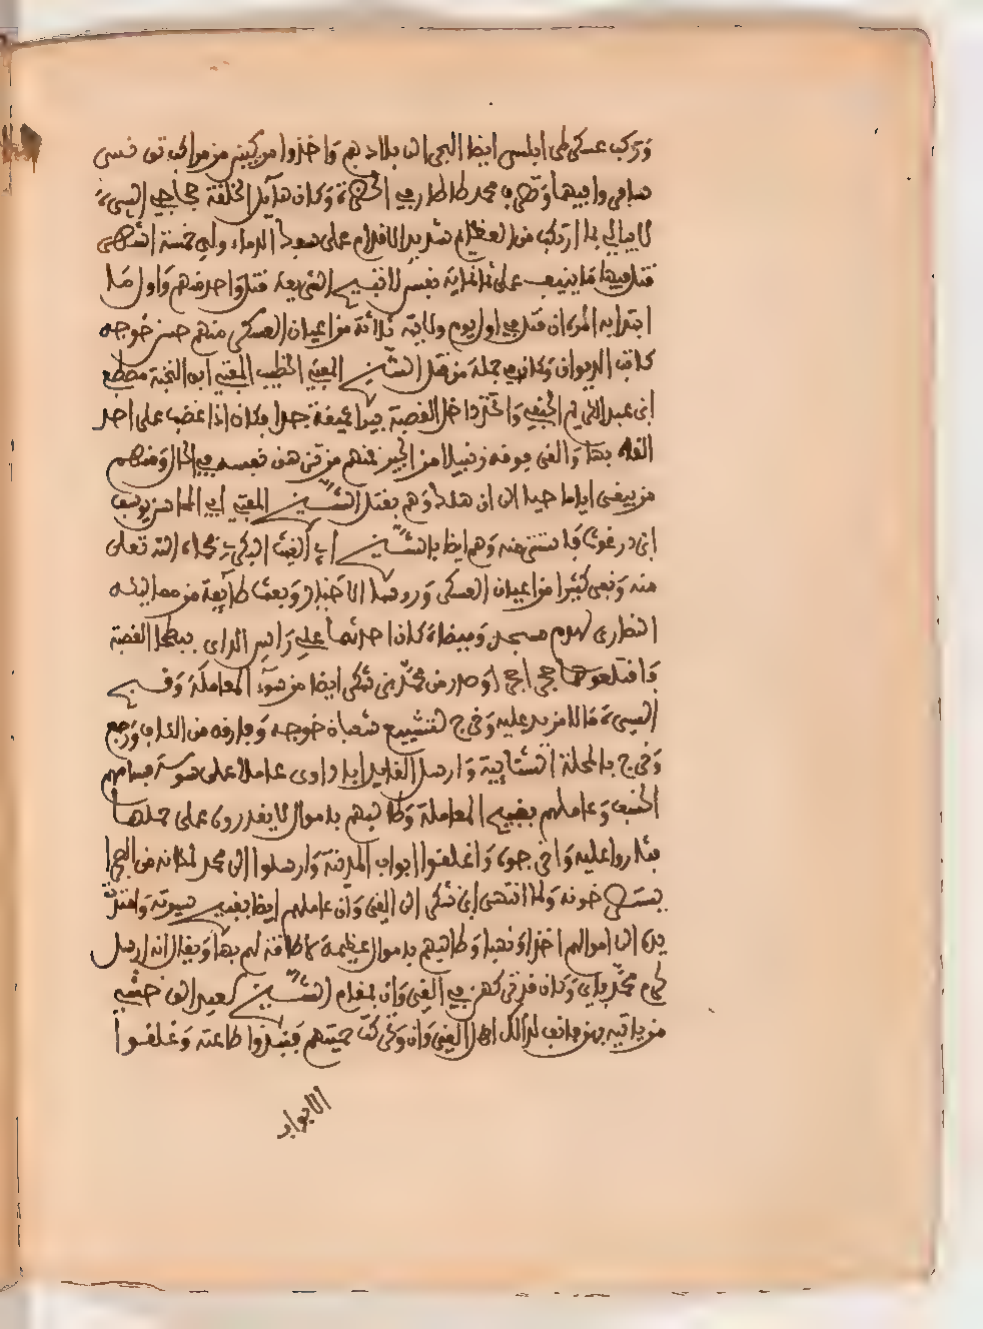 وركب عسكر طرابلس ايضا البحر الى بلادهم واخذوا مركبين من مراكب تونس
سافروا فيها وتصرف محمد طاطار في الحضرة وكان هايل الخلقة حجاجي السيرة
لا يبالي بما ارتكب من العظايم شديد الاقدام على سفك الدماء ولي خمسة اشهر
قتل فيها ما ينيف على ثلاثماية نفس لا تقيم الشريعة قتل واحد منهم واول ما
ابتدا به امره ان قتل في اول يوم ولايته ثلاثة من اعيان العسكر منهم حسن خوجه
كاتب الديوان وكان في جملة من قتل الشيخ المفتي الخطيب المفتي ابو النجية مصطفى
ابن عبد الكريم الحنفي واحتفر داخل القصبة بيرا عميقة جدا فكان اذا غضب على احد
القاه بها والقى فوقه زنبيلا من الجير فمنهم من تزهق نفسه في الحال ومنهم
من يبقى اياما حيا الى ان هلك وهم بقتل الشيخ المفتي ابي المحاسن يوسف
ابن درغوث فاستشفى منه وهم ايضا بالشيخ ابي الغيث البكري فجاه الله تعالى
منه ونفى كثيرا من اعيان العسكر وروسا الاجناد وبعث طايفة من مماليكه
النصارى لهدم مسجد وميضاة كان احدثها علي رايس الداي ببطحا القصبة
فاقتلعوها حجرا حجرا وصدر من محمد بن شكر ايضا من سوء المعاملة وقبيح
السيرة ما لا مزيد عليه وخرج لتشييع شعبان خوجه وفارقه من الكاف ورجع
وخرج بالمحلة الشتايية وارسل القايد اباداوى عاملا على سوسة فسامهم
الخسف وعاملهم بقبيح المعاملة وطالبهم باموال لا يقدرون على حملها
فثاروا عليه واخرجوه واغلقوا ابواب المدينة وارسلوا الى محمد لمكانه من الصحرا
يستصرخونه ولما انتهى ابن شكر الى القيروان عاملهم ايضا بقبيح سيرته وامتدت
يده الى اموالهم اخذا ونهبا وطالبهم باموال عظيمة لا طاقة لهم بها ويقال انه ارسل
لهم محمد باي وكان فرق كهن في القيروان بمقام الشيخ سعيد الوحشي
من ياتيه بهم فانف لذلك اهل القيروان وحركت حميتهم فنبذوا طاعته وغلقوا
الابواب